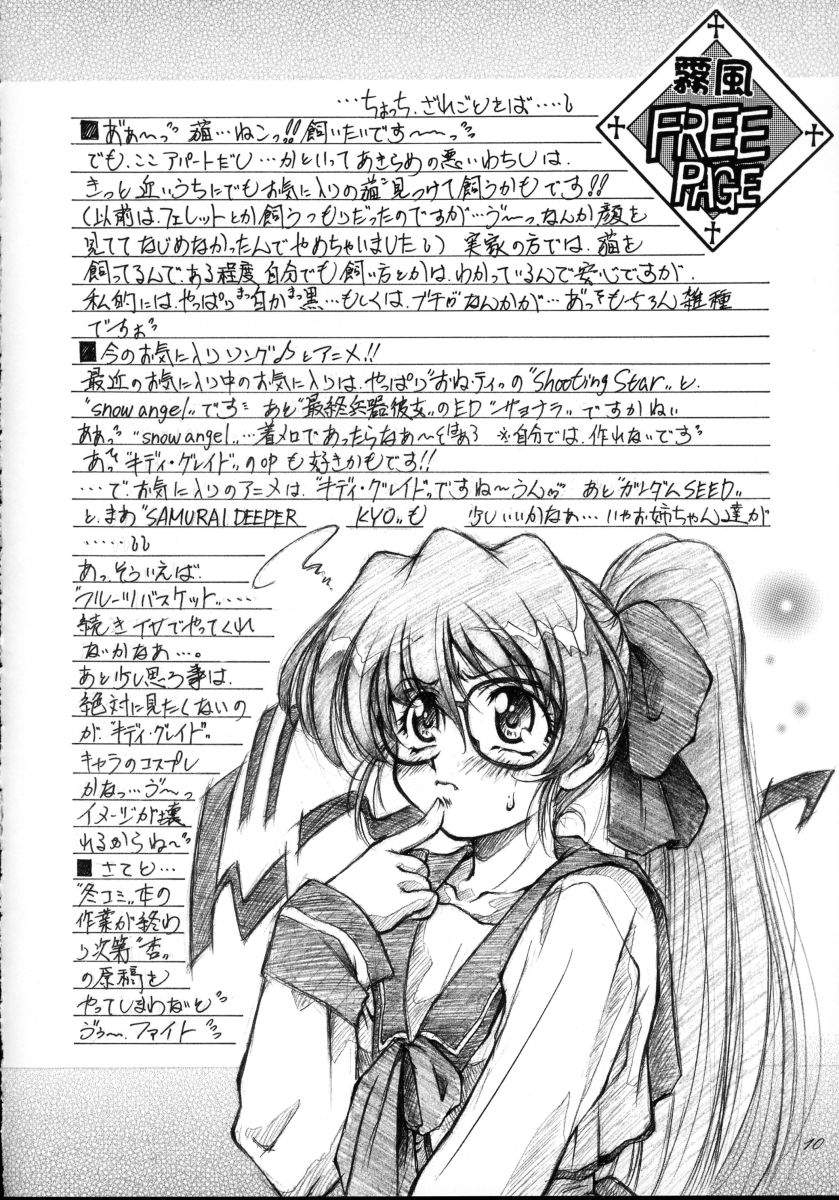 霧風
FREE
PAGE
…ちょっち、ざれごとをば……
■おぁ〜っ 猫…ねこっ!! 飼いたいです〜〜っ
でも、ここアパートだし…かといってあきらめの悪いわちしは、
きっと近いうちにでもお気に入りの猫見つけて飼うかもです!!
(以前は、フェレットとか飼うつもりだったのですが…ゔ〜っなんか顔を
見ててなじめなかったんでやめちゃいました) 実家の方では、猫を
飼ってるんで、ある程度自分でも飼い方とかは、わかっているんで安心ですが、
私的には、やっぱりまっ白かまっ黒…もしくは、ブチなんかが…あっもちろん雑種
ですぉ
■今のお気に入りソング♪とアニメ!!
最近のお気に入り中のお気に入りは、やっぱり〝おね・ティ〟の〝Shooting Star〟と、
〝snow angel〟です あと〝最終兵器彼女〟のED〝サヨナラ〟ですかねぃ
ああっ〝snow angel〟…着メロであったらなぁ〜 ※自分では、作れないです
あっ〝キディ・グレイド〟の中も好きかもです!!
…で、お気に入りのアニメは、〝キディ・グレイド〟ですね〜うん あと〝ガンダムSEED〟
と、まあ〝SAMURAI DEEPER KYO〟も 少しいいかなぁ…いやお姉ちゃん達が
……
あっ、そういえば、
〝フルーツバスケット〟…
続きTVでやってくれ
ないかなぁ…。
あと少し思う事は、
絶対に見たくないの
が、〝キディ・グレイド〟
キャラのコスプレ
かなっ…ゔ〜っ
イメージが壊
れるからね〜
■さてと…
〝冬コミ〟本の
作業が終わ
り次第〝杏〟
の原稿を
やってしまわないと
ゔぅ〜、ファイト
10